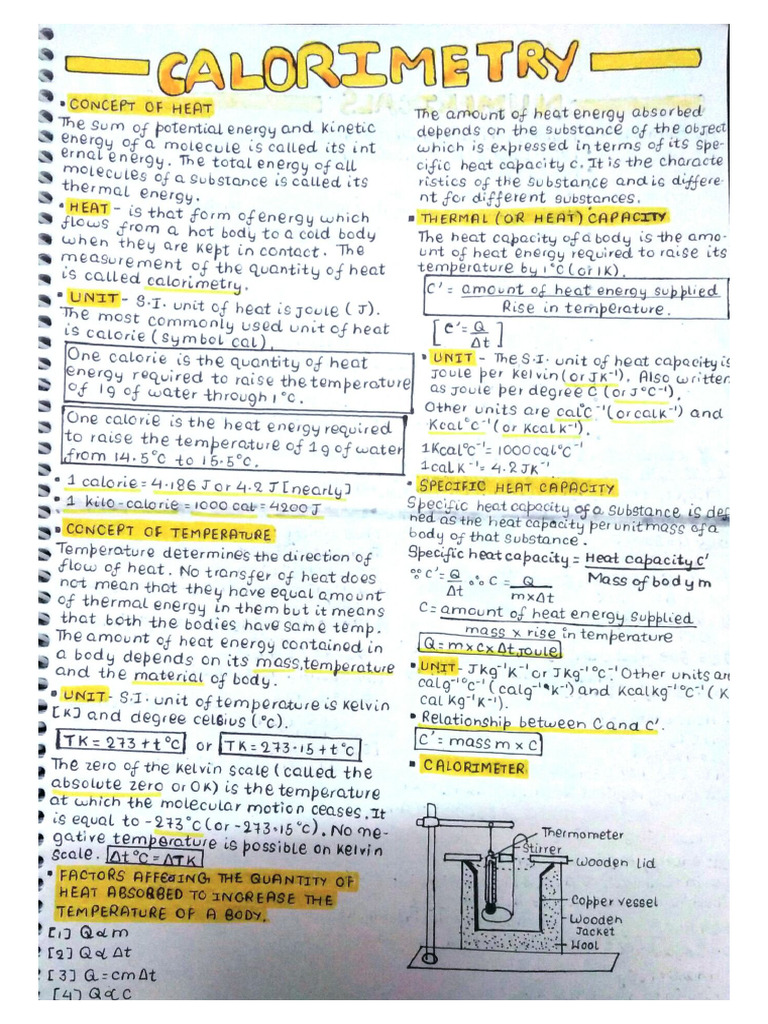 CALORIMETRY
• CONCEPT OF HEAT
The sum of potential energy and kinetic
energy of a molecule is called its int
ernal energy. The total energy of all
molecules of a substance is called its
thermal energy.
• HEAT - is that form of energy which
flows from a hot body to a cold body
when they are kept in contact. The
measurement of the quantity of heat
is called calorimetry.
• UNIT - S.I. unit of heat is joule (J).
The most commonly used unit of heat
is calorie (symbol cal).
One calorie is the quantity of heat
energy required to raise the temperature
of 1g of water through 1°C.
One calorie is the heat energy required
to raise the temperature of 1g of water
from 14.5°C to 15.5°C.
• 1 calorie = 4.186 J or 4.2 J [nearly]
• 1 kilo-calorie = 1000 cal = 4200 J
• CONCEPT OF TEMPERATURE
Temperature determines the direction of
flow of heat. No transfer of heat does
not mean that they have equal amount
of thermal energy in them but it means
that both the bodies have same temp.
The amount of heat energy contained in
a body depends on its mass, temperature
and the material of body.
• UNIT - S.I. unit of temperature is Kelvin
[K] and degree celsius (°C).
TK = 273 + t°C or TK = 273.15 + t°C
The zero of the Kelvin scale (called the
absolute zero or 0K) is the temperature
at which the molecular motion ceases. It
is equal to -273°C (or -273.15°C). No ne-
gative temperature is possible on Kelvin
scale. Δt°C = ΔTK
• FACTORS AFFECING THE QUANTITY OF
HEAT ABSORBED TO INCREASE THE
TEMPERATURE OF A BODY.
[1] Q∝m
[2] Q∝Δt
[3] Q = cmΔt
[4] Q∝C
The amount of heat energy absorbed
depends on the substance of the object
which is expressed in terms of its spe-
cific heat capacity c. It is the characte
ristics of the substance and is differe-
nt for different substances.
• THERMAL (OR HEAT) CAPACITY
The heat capacity of a body is the amo-
unt of heat energy required to raise its
temperature by 1°C (or 1K).
C' = amount of heat energy supplied
Rise in temperature.
[C' = Q
Δt]
• UNIT - The S.I. unit of heat capacity is
joule per kelvin (or JK⁻¹). Also written
as joule per degree C (or J°C⁻¹).
Other units are cal°C⁻¹ (or calK⁻¹) and
Kcal°C⁻¹ (or Kcal K⁻¹).
1Kcal°C⁻¹ = 1000 cal°C⁻¹
1cal K⁻¹ = 4.2 JK⁻¹
• SPECIFIC HEAT CAPACITY
Specific heat capacity of a substance is defi
ned as the heat capacity per unit mass of a
body of that substance.
Specific heat capacity = Heat capacity C'
Mass of body m
∵ C' = Q ∴ C = Q
Δt m×Δt
C = amount of heat energy supplied
mass × rise in temperature
Q = m×c×Δt joule
• UNIT - JKg⁻¹K⁻¹ or JKg⁻¹°C⁻¹ Other units are
calg⁻¹°C⁻¹ (calg⁻¹K⁻¹) and Kcalkg⁻¹°C⁻¹ (K
cal Kg⁻¹K⁻¹).
• Relationship between C and C'.
C' = mass m × C
• CALORIMETER
Thermometer
Stirrer
Wooden lid
Copper vessel
Wooden
Jacket
Wool